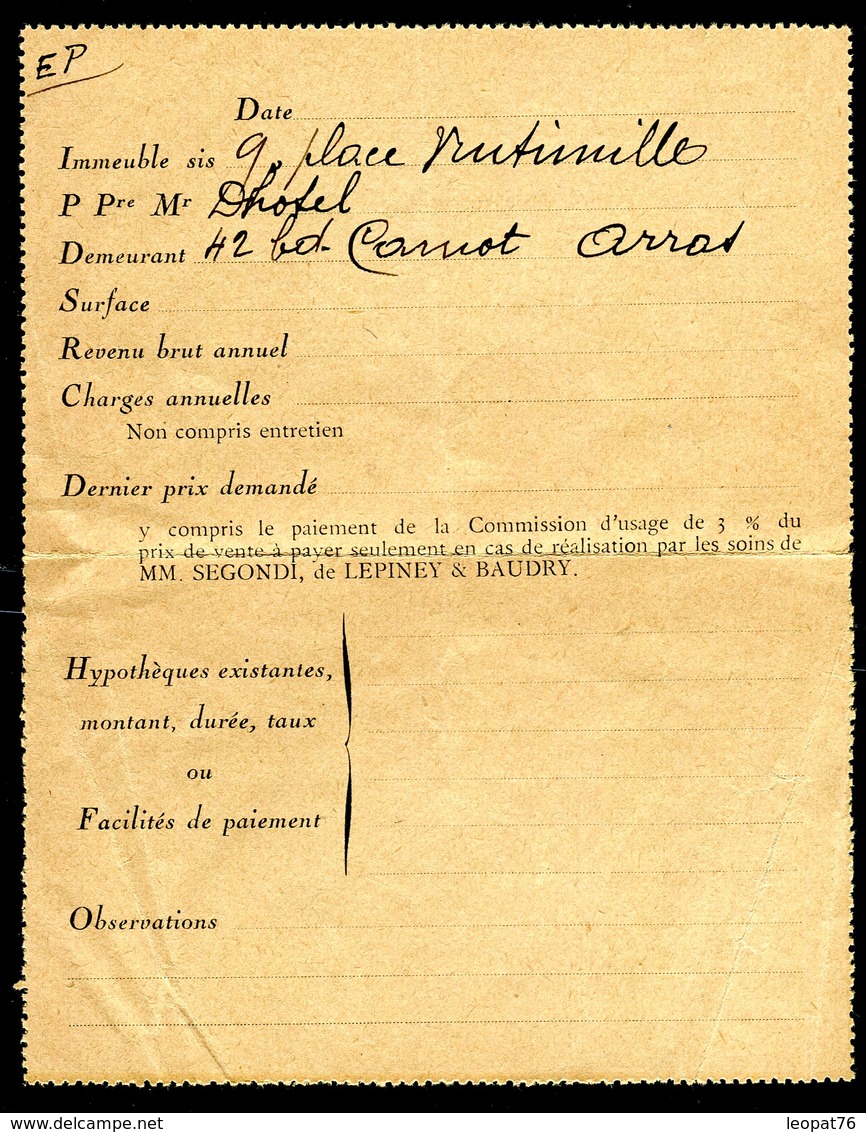 EP
Date
Immeuble sis 9, place
P Pre Mr Dhotel
Demeurant 42 bd. Carnot Arras
Surface
Revenu brut annuel
Charges annuelles
Non compris entretien
Dernier prix demandé
y compris le paiement de la Commission d'usage de 3 % du
prix de vente à payer seulement en cas de réalisation par les soins de
MM. SEGONDI, de LEPINEY & BAUDRY.
Hypothèques existantes,
montant, durée, taux
ou
Facilités de paiement
Observations
www.delcampe.net
leopat76